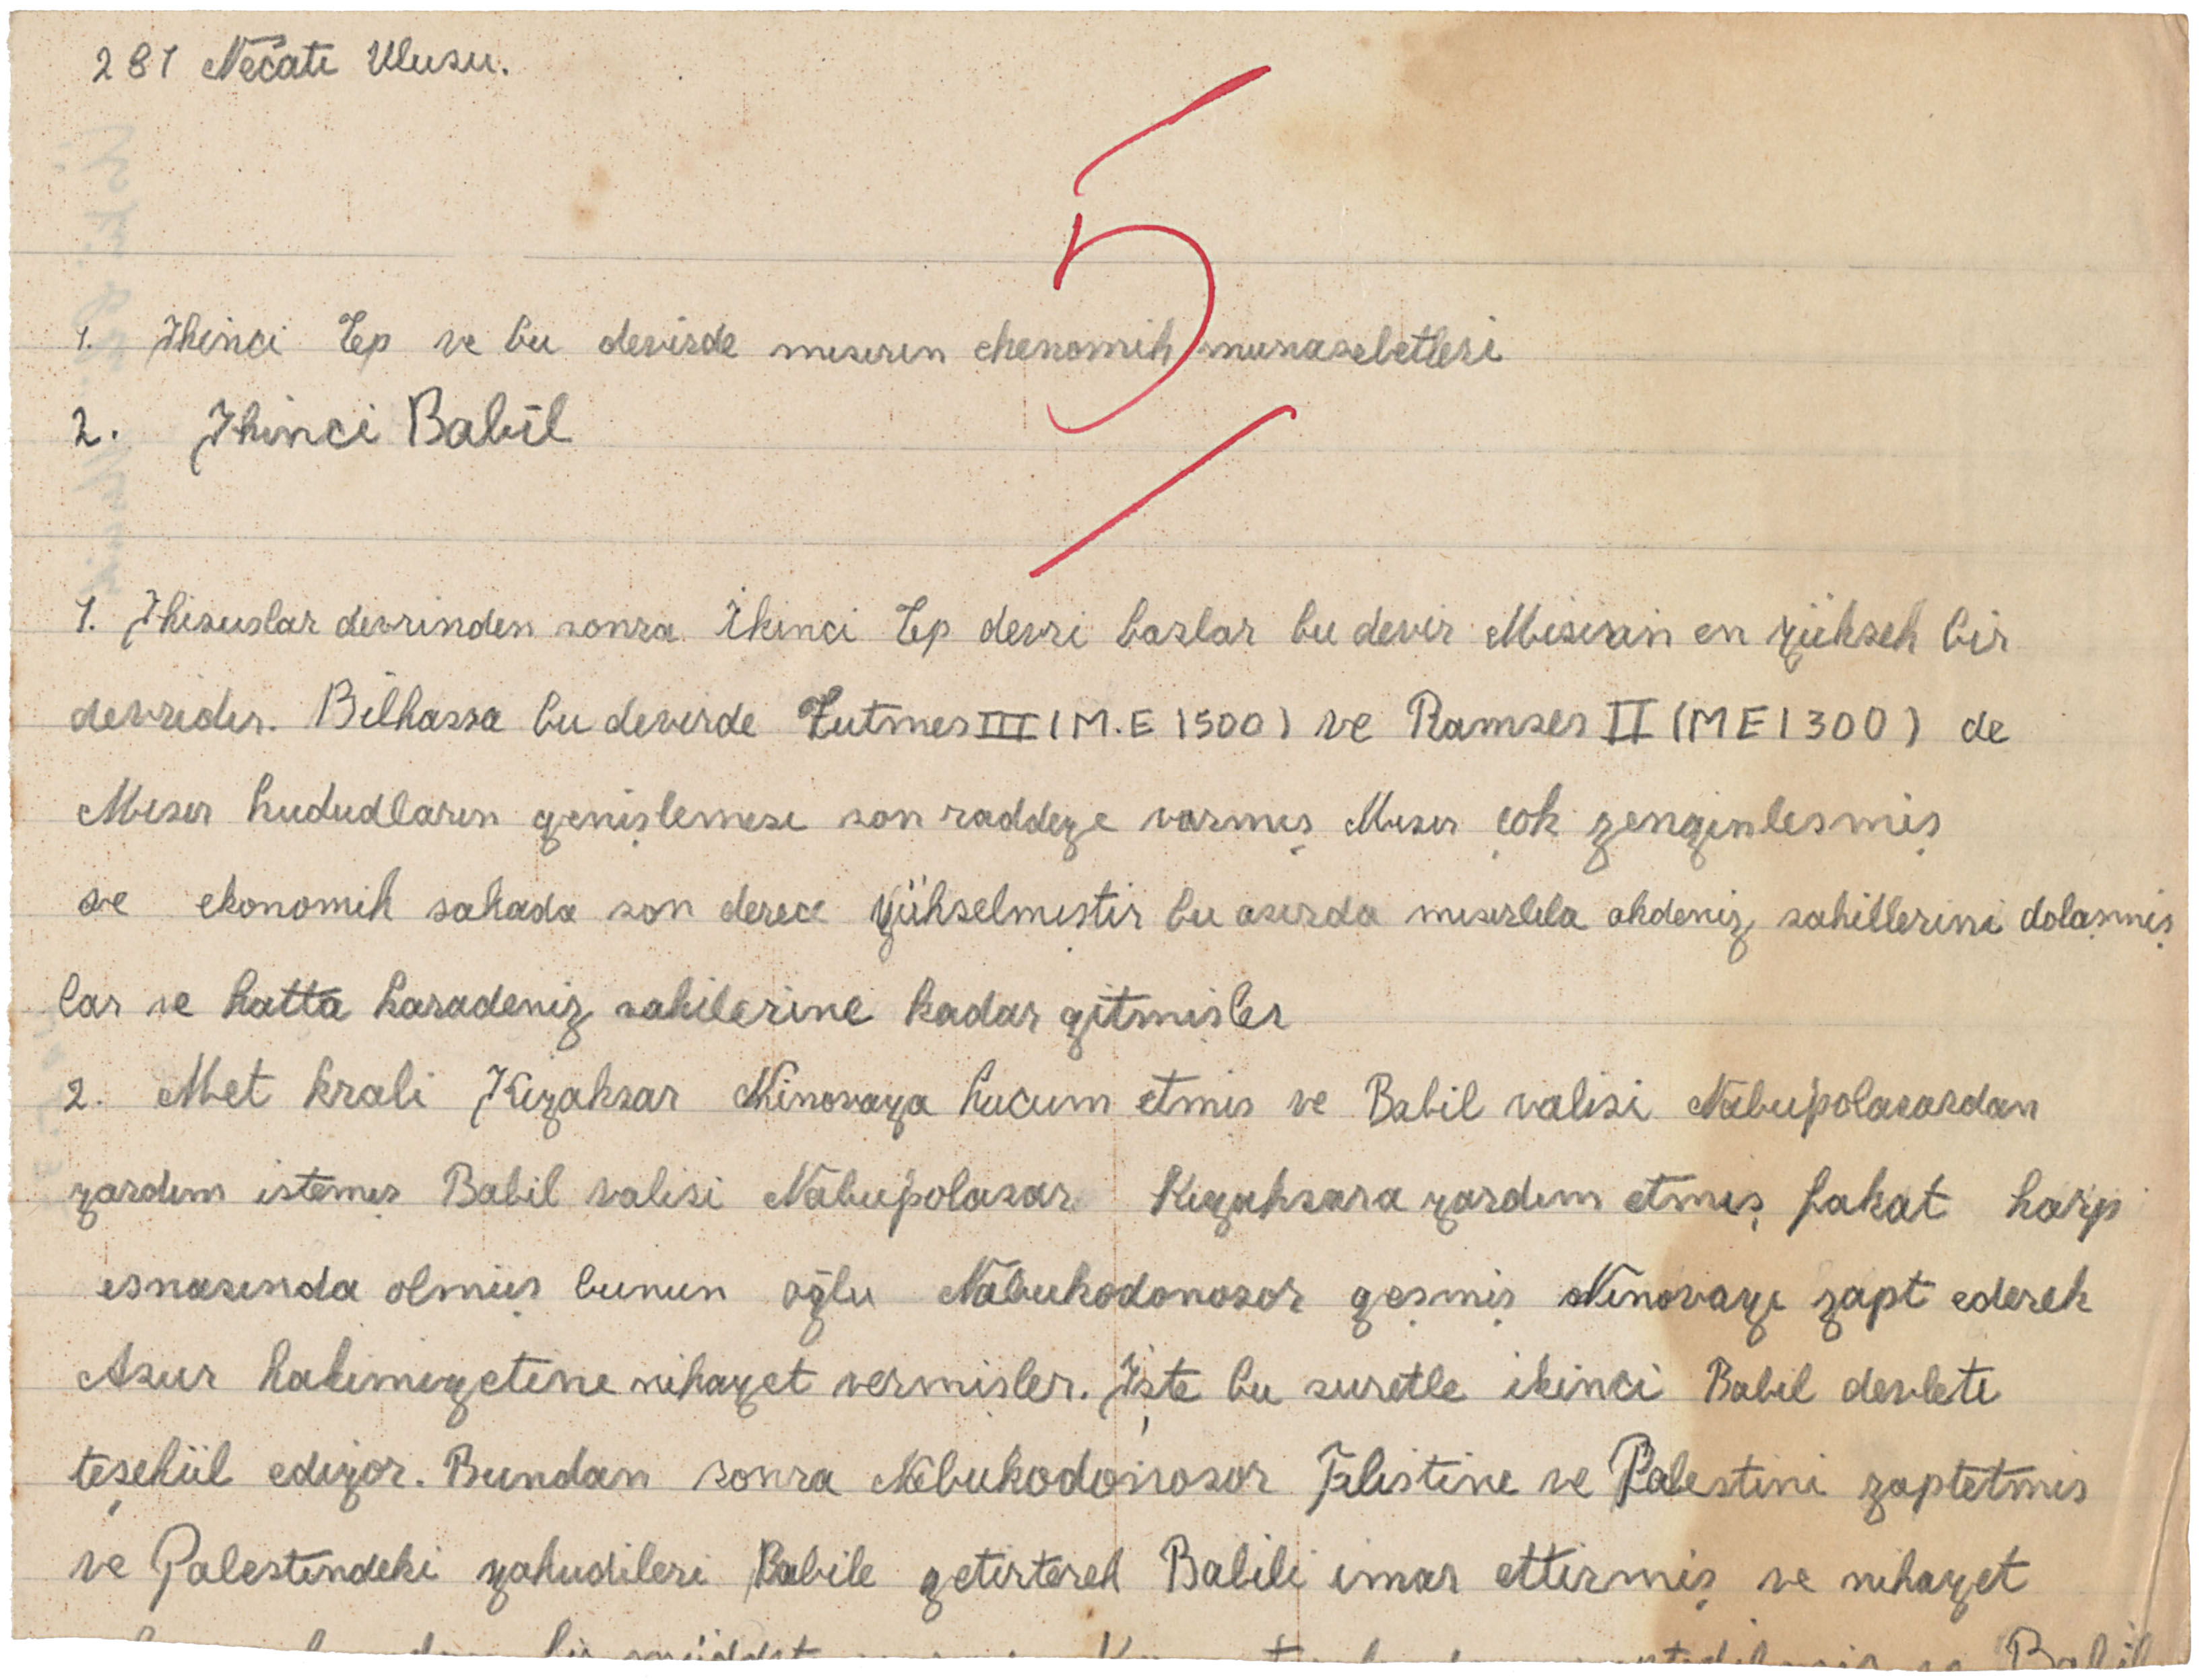 281 Necati Ulusu.
5
1. Ikinci Tep ve bu devirde mısırın ekonomik munasebetleri
2. Ikinci Babil
1. Ihisuslar devrinden sonra İkinci Tep devri baslar bu devir Mısırın en yüksek bir
devridir. Bilhassa bu devirde Tutmes III (M.E 1500) ve Ramses II (ME 1300) de
Mısır hududların genişlemesi son raddeye varmış Mısır çok zenginlesmiş
ve ekonomik sahada son derece yükselmıştir bu asırda mısırlıla akdeniz sahillerini dolaşmiş
lar ve hatta karadeniz sahilerine kadar gitmisler
2. Met krali Kıyaksar Ninovaya hucum etmis ve Babil valisi Nabupolasardan
yardım istemış Babil valisi Nabupolasar Kıyaksara yardım etmış fakat harp
esnasında olmüş bunun oğlu Nabukodonosor geşmiş Ninovayı zapt ederek
Asur hakimiyetine nihayet vermisler. Işte bu suretle ikinci Babil devleti
teşekül ediyor. Bundan sonra Nebukodonosor Filistine ve Palestini zaptetmis
ve Palestindeki yahudileri Babile getirterek Babili imar ettirmiş ve nihayet
bir müddet